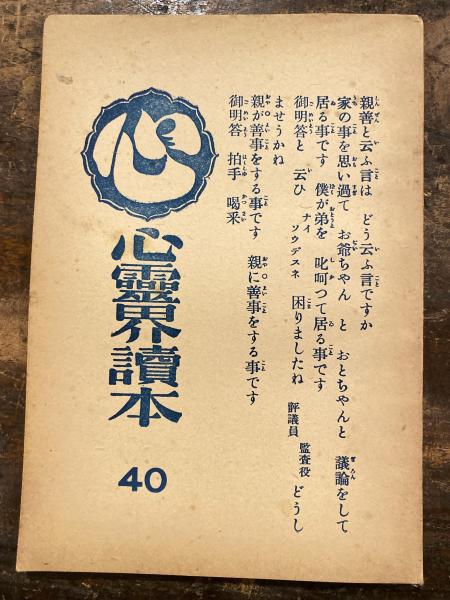 親善と云ふ言は どう云ふ言ですか
家の事を思い過て お爺ちゃん と おとちゃんと 議論をして
居る事です 僕が弟を 叱呵つて居る事です
御明答と 云ひ ナイ ソウデスネ 困りましたね 評議員 監査役 どうし
ませうかね
親が善事をする事です 親に善事をする事です
御明答 拍手 喝采
心
心霊界讀本
40